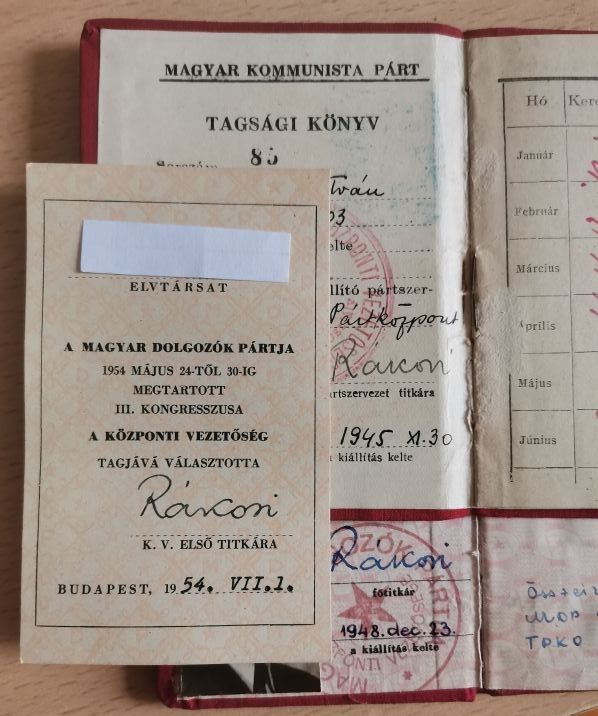 MAGYAR KOMMUNISTA PÁRT
TAGSÁGI KÖNYV
Sorszám 85
tván
03
elte
állító pártszer-
Pártközpont
Rákosi
ártszervezet titkára
1945 XI.30
a kiállítás kelte
ELVTÁRSAT
A MAGYAR DOLGOZÓK PÁRTJA
1954 MÁJUS 24-TŐL 30-IG
MEGTARTOTT
III. KONGRESSZUSA
A KÖZPONTI VEZETŐSÉG
TAGJÁVÁ VÁLASZTOTTA
Rákosi
K. V. ELSŐ TITKÁRA
BUDAPEST, 1954. VII.1.
Rákosi
főtitkár
1948.dec.23.
a kiállítás kelte
Hó Kere
Január
Február
Március
Április
Május
Június